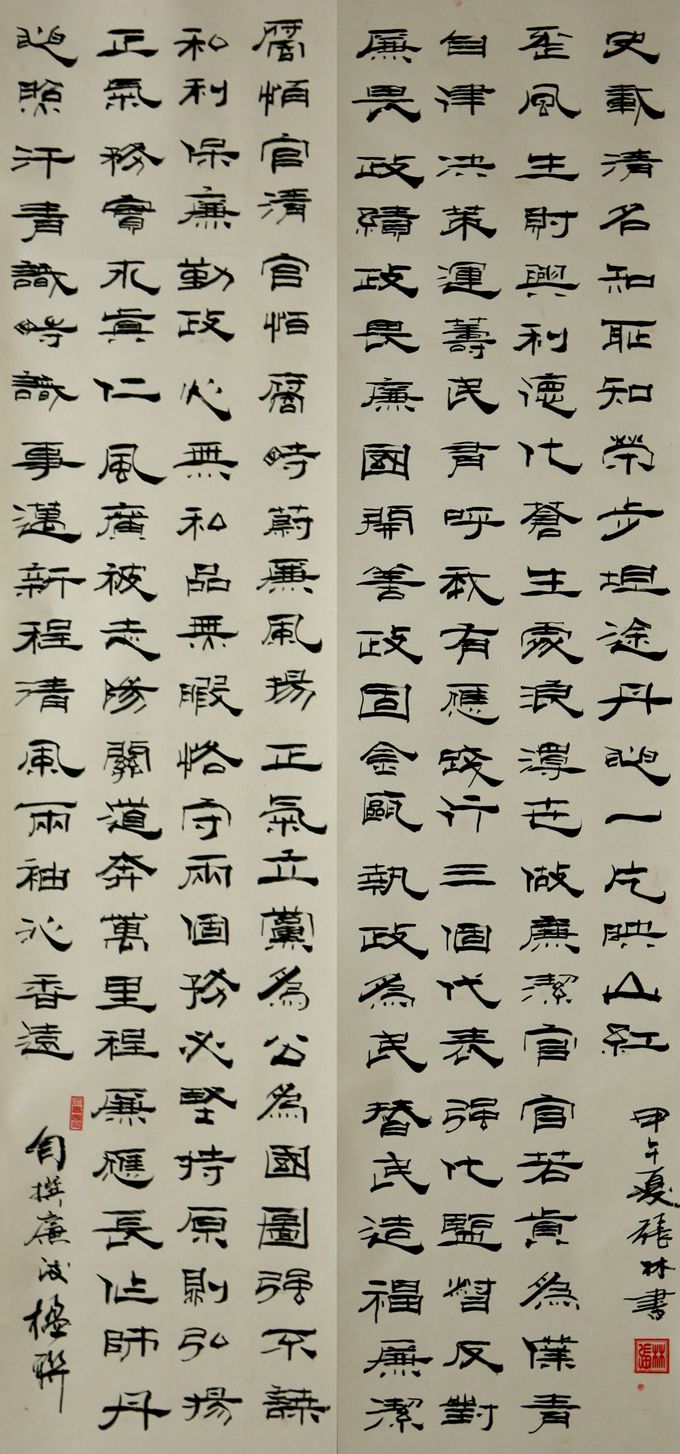 廉畏政績政畏廉國開善政固金甌執政為民替民造福廉潔
自律決策運籌民有呼我有應踐行三個代表强化監督反對
歪風生財興利德化蒼生處浪澤世做廉潔官官若肯為僕青
史載清名知恥知榮步坦途丹心一片映山紅
甲午夏張林書
張林
腐怕官清官怕腐時蔚廉風揚正氣立黨為公為國圖强不謀
私利保廉勤政心無私品無瑕恪守兩個務必堅持原則弘揚
正氣務實求真仁風廣被走陽關道奔萬里程廉應長作師丹
心照汗青識時識事邁新程清風兩袖沁香遠
自撰廉政楹聯